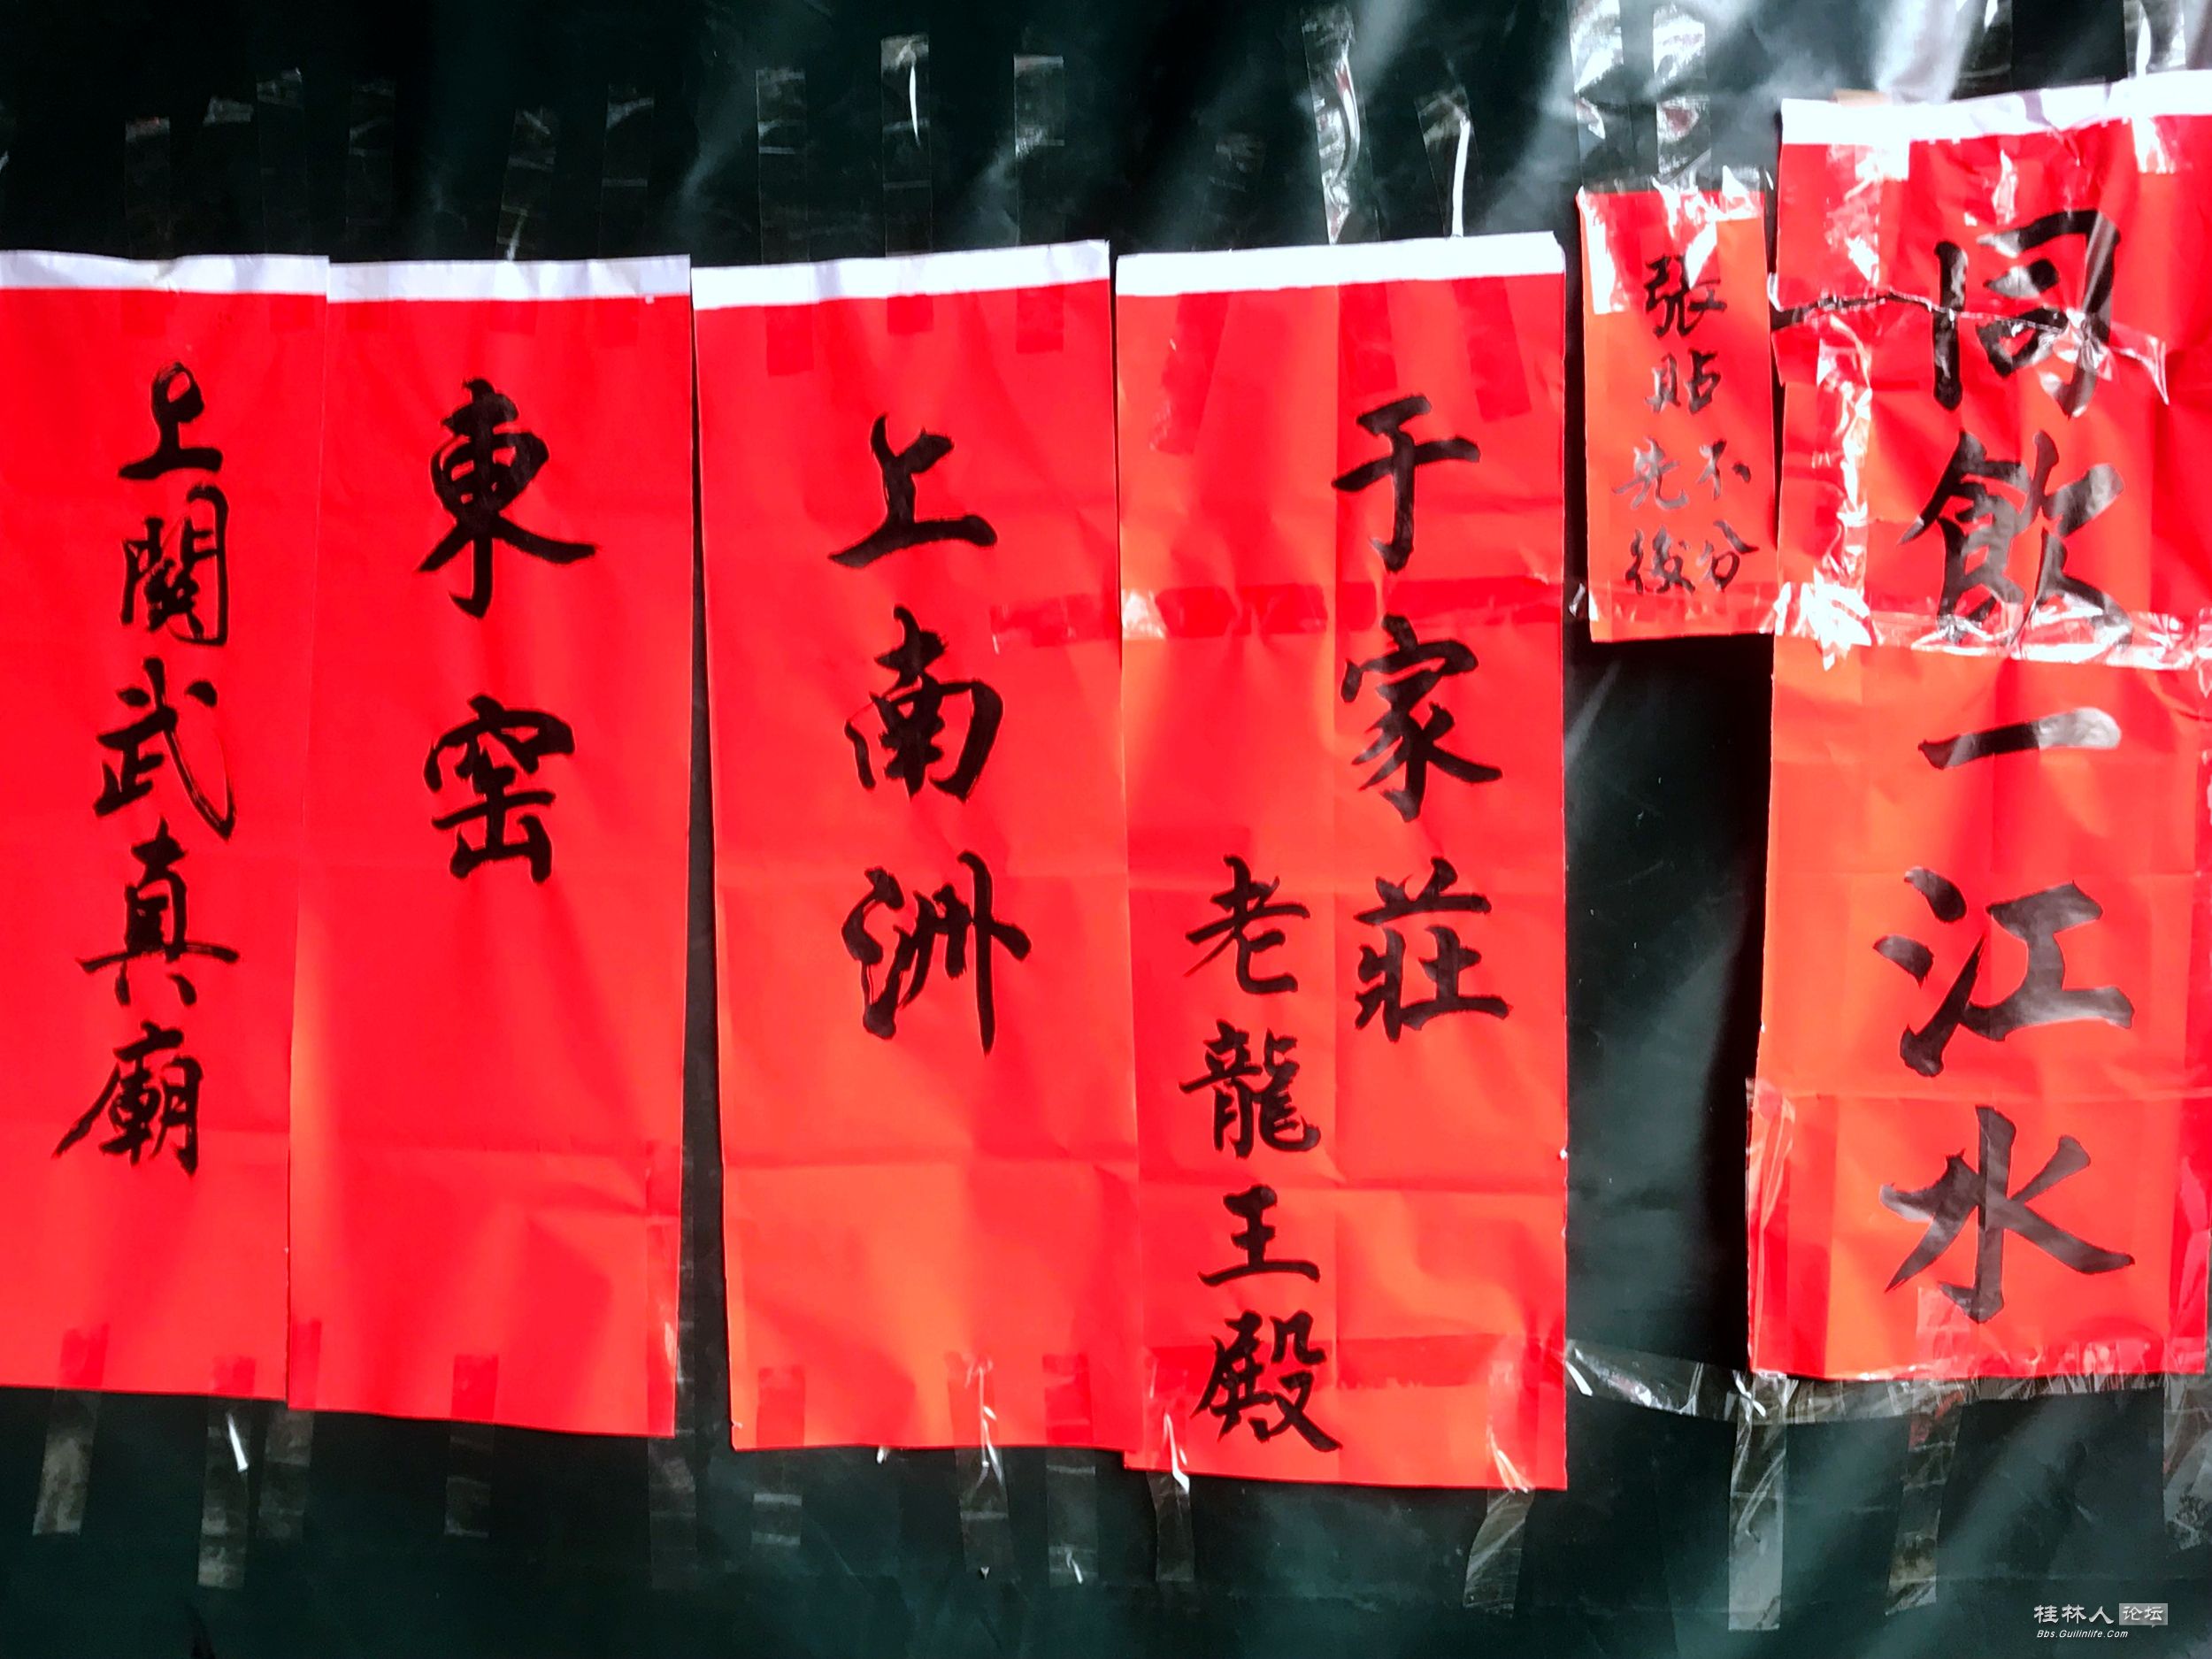 同飲一江水
張貼不分先後
于家莊
老龍王殿
上南洲
東窑
上關武真廟
桂林人论坛
Bbs.Guilinlife.Com